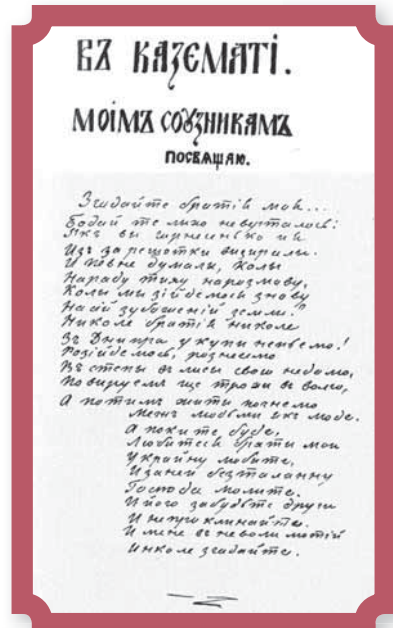 ВЪ КАЗЕМАТІ.
МОІМЪ СОУЗНИКАМЪ
ПОСВЯЩАЮ.
Згадайте братія моя...
Бодай те лихо неверталось!
Якъ вы гарнесенько ии
Изъ за решотки визирали.
И певне думали, колы
На раду тиху на розмову,
Колы мы зійдемось знову
На сій зубоженій земли?
Николе братія николе
Зъ Днипра у купи непьемо!
Розійдемось, рознесемо
Въ степы въ лисы свою недолю,
Повируемъ ще трохи въ волю,
А потимъ жыти почнемо
Межъ людьми якъ люде.
А поки те буде,
Любитеся браты мои
Украйну любите,
И за неи безталанну
Господа молите.
И його забудьте други
И непроклинайте.
И мене въ неволи лютій
Инколе згадайте.